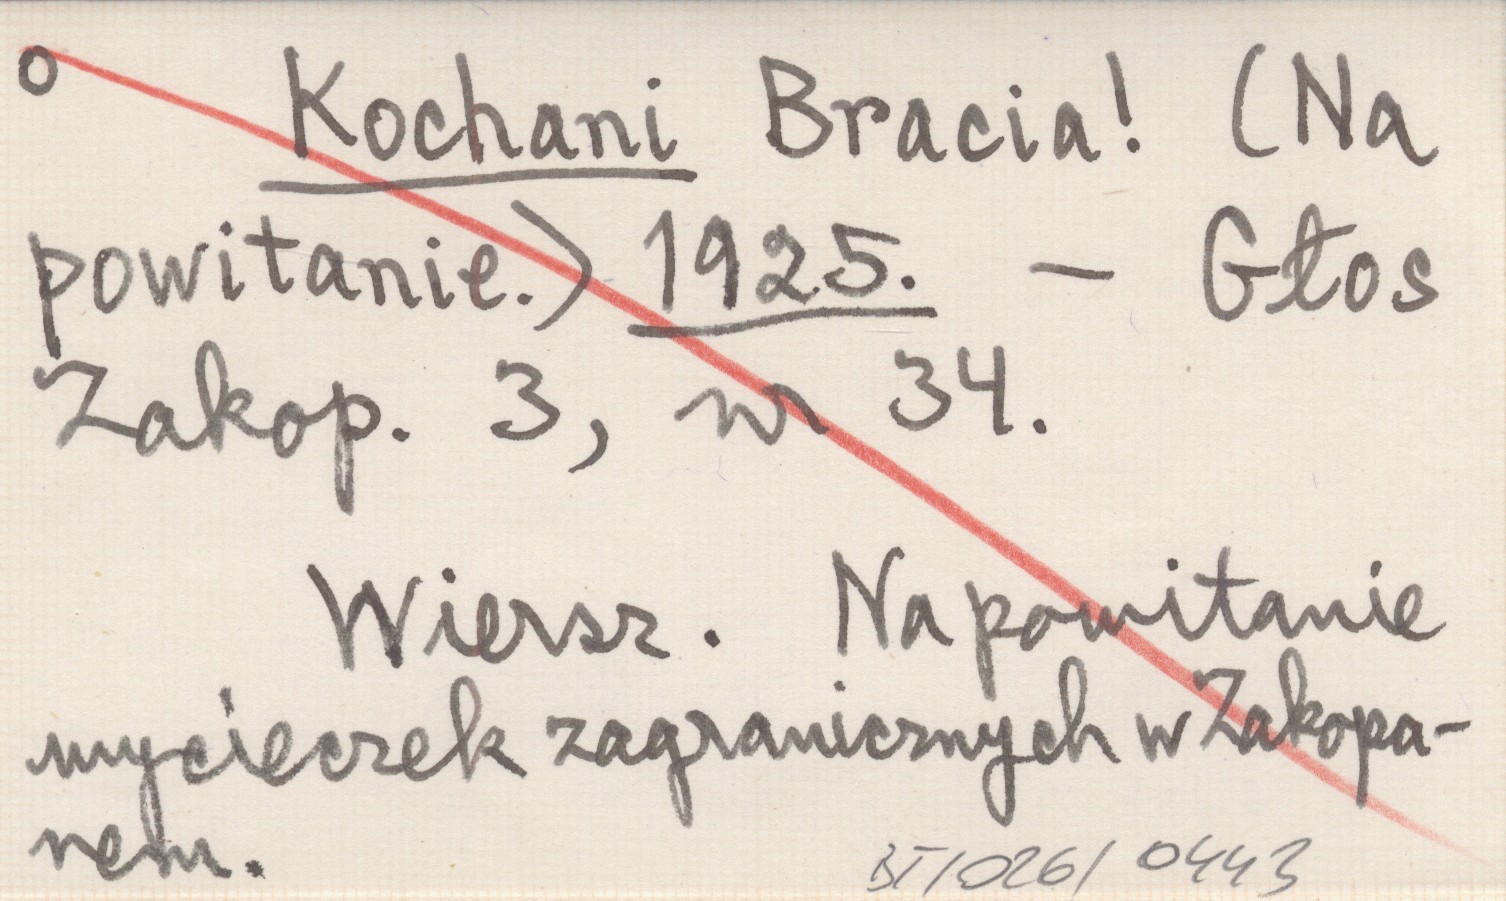 o Kochani Bracia! (Na
powitanie.) 1925. - Głos
Zakop. 3, nr 34.
Wiersz. Na powitanie
wycieczek zagranicznych w Zakopa-
nem.
BT/026/ 0443